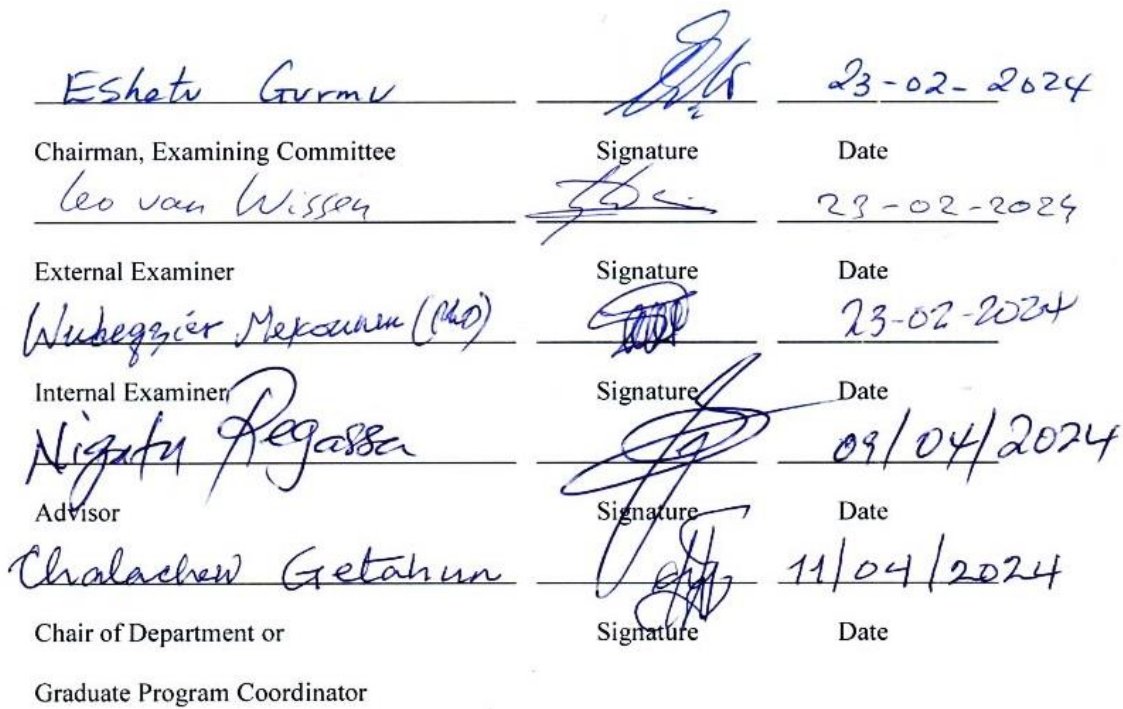 Eshetu Gurmu 23-02-2024
Chairman, Examining Committee Signature Date
Leo van Wissen 23-02-2024
External Examiner Signature Date
Wubegzier Mekonnen (PhD) 23-02-2024
Internal Examiner Signature Date
Nigatu Regassa 09/04/2024
Advisor Signature Date
Chalachew Getahun 11/04/2024
Chair of Department or Signature Date
Graduate Program Coordinator